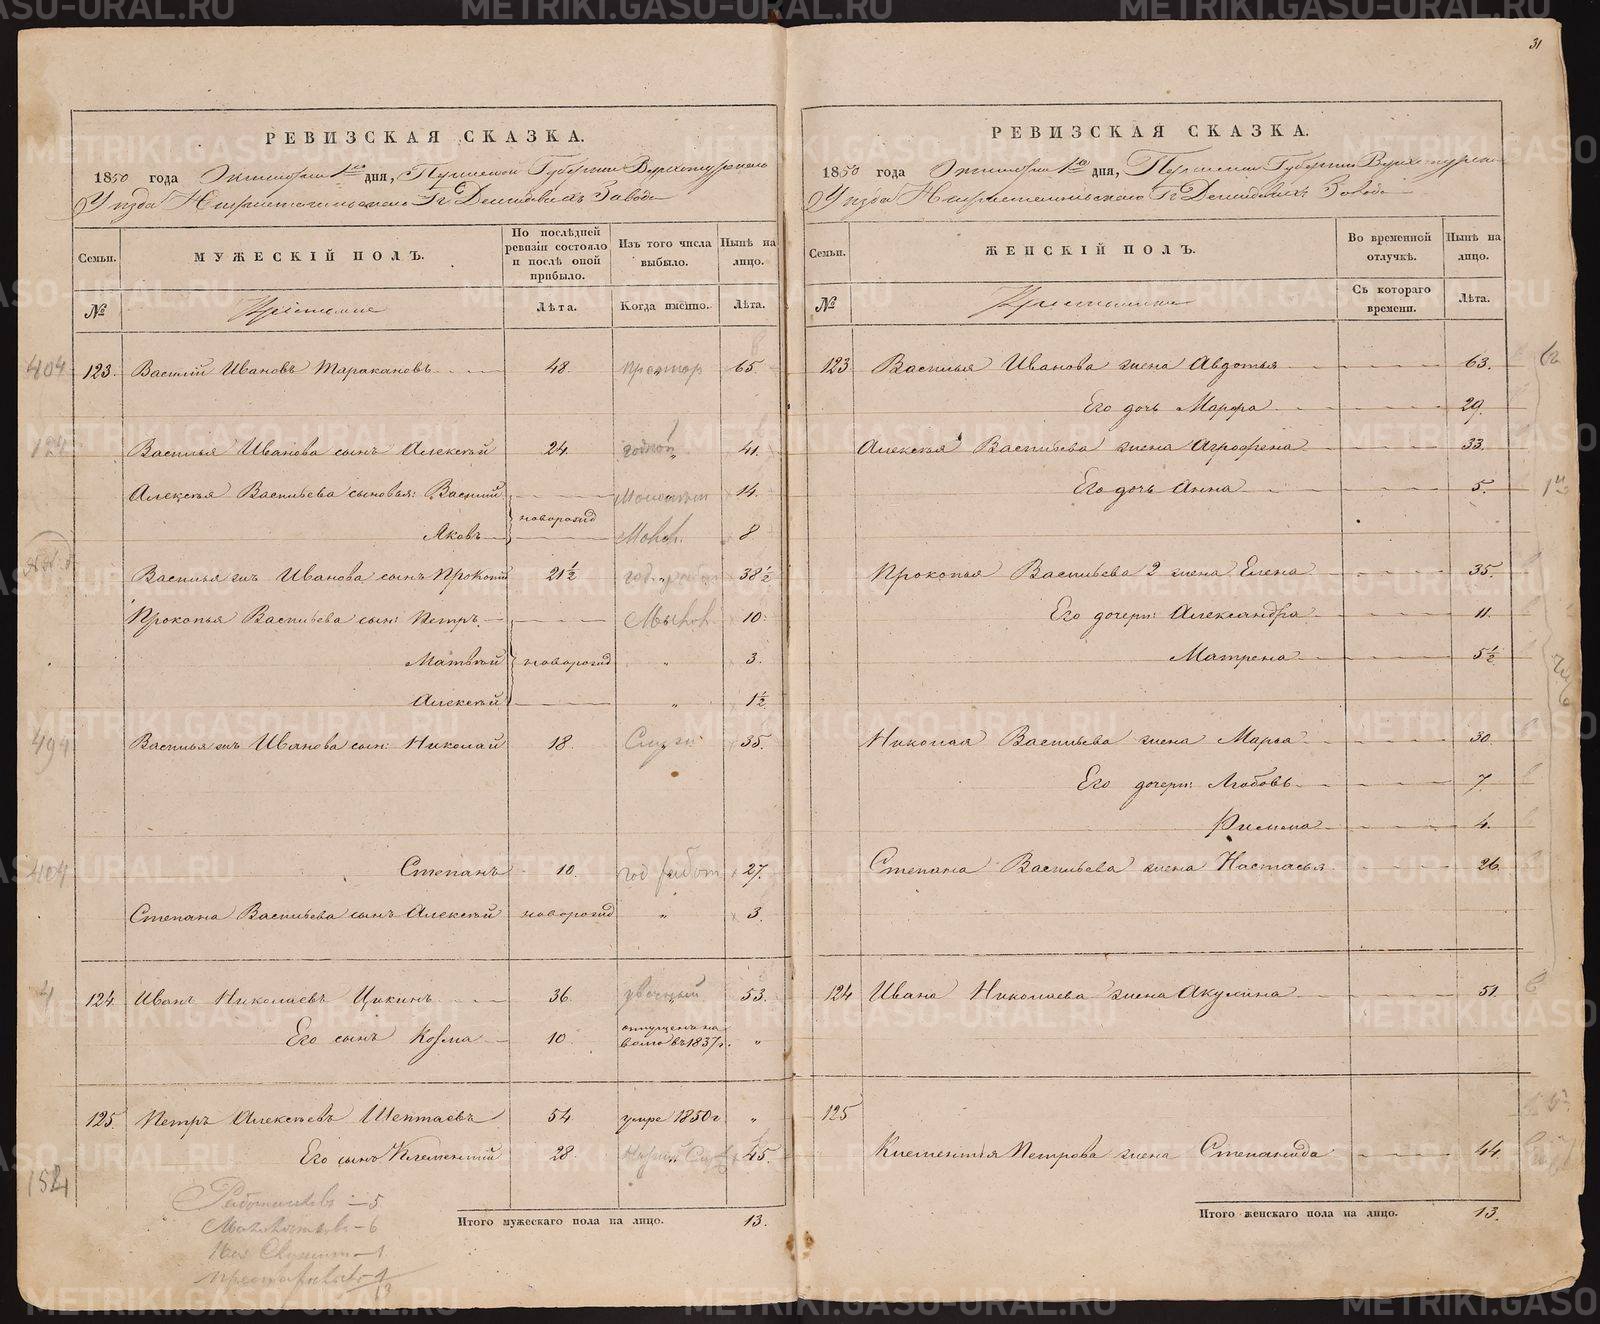 31
РЕВИЗСКАЯ СКАЗКА.
1850 года Октября 1го дня, Пермской Губернии Верхотурскаго
Уезда Нижнетагильскаго Гг Демидовыхъ Завода
Семьи.
МУЖЕСКІЙ ПОЛЪ.
По послѣдней ревизіи состояло и послѣ оной прибыло.
Изъ того числа выбыло.
Нынѣ на лицо.
№
Крестьяне
Лѣта.
Когда именно.
Лѣта.
404 123. Василій Ивановъ Таракановъ 48. 65.
Василья Иванова сынъ Алексѣй 24. годной 41.
Алексѣя Васильева сыновья: Василій 14.
новорожд
Яковъ 8
Василья жъ Иванова сынъ Прокопій 21½ 38½
Прокопья Васильева сын: Петръ 10.
Матвѣй новорожд „ 3.
Алексѣй „ 1½
Василья жъ Иванова сын: Николай 18. 35.
404 Степанъ 10. год работ 27.
Степана Васильева сынъ Алексѣй новорожд „ 3.
124 Иванъ Николаевъ Цикинъ 36. 53.
Его сынъ Козма 10. отпущенъ на волю въ 1837 г. „
125. Петръ Алексѣевъ Шептаевъ 54 умре 1850 г „
Его сынъ Клементій 28. 45.
Итого мужескаго пола на лицо. 13.
Работниковъ — 5
6
1
13
РЕВИЗСКАЯ СКАЗКА.
1850 года Октября 1го дня, Пермской Губернии Верхотурскаго
Уезда Нижнетагильскаго Гг Демидовыхъ Завода
Семьи.
ЖЕНСКІЙ ПОЛЪ.
Во временной отлучкѣ.
Нынѣ на лицо.
№
Крестьянки
Съ котораго времени.
Лѣта.
123 Василья Иванова жена Авдотья 63.
Его дочь Марфа 29.
Алексѣя Васильева жена Агрофена 33.
Его дочь Анна 5.
Прокопья Васильева 2 жена Елена 35.
Его дочери: Александра 11.
Матрена 5½
Николая Васильева жена Марья 30.
Его дочери: Любовь 7.
Римма 4.
Степана Васильева жена Настасья 26.
124 Ивана Николаева жена Акулина 51.
125
Клементія Петрова жена Степанида 44.
Итого женскаго пола на лицо. 13.
METRIKI.GASO-URAL.RU